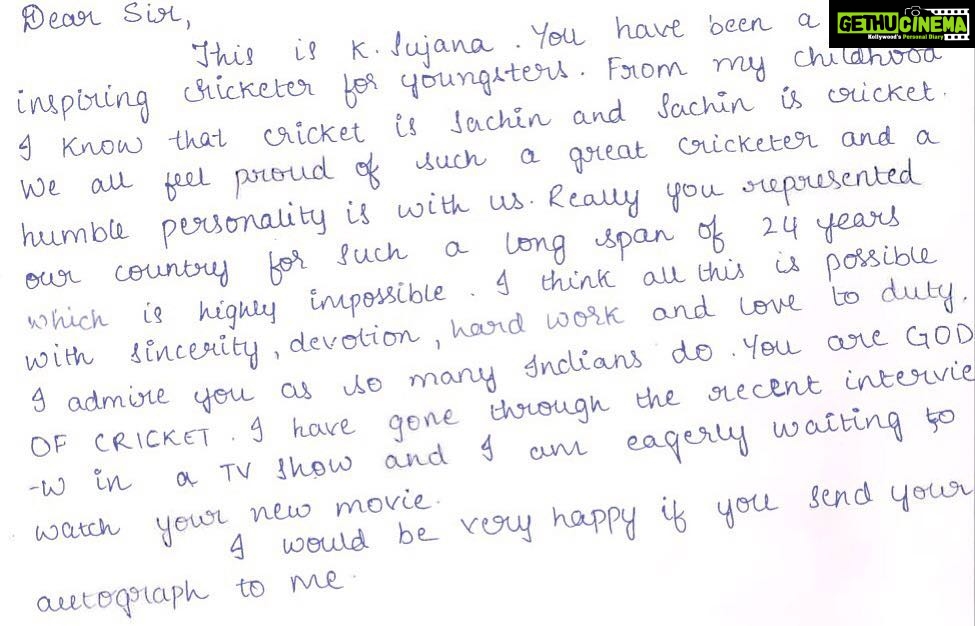 Dear Sir,
GETHUCINEMA
Kollywood's Personal Diary
This is K. Sujana. You have been a
inspiring cricketer for youngsters. From my childhood
I know that cricket is Sachin and Sachin is cricket.
We all feel proud of such a great cricketer and a
humble personality is with us. Really you represented
our country for such a long span of 24 years
which is highly impossible. I think all this is possible
with sincerity, devotion, hard work and love to duty.
I admire you as so many Indians do. You are GOD
OF CRICKET. I have gone through the recent intervie
-w in a TV show and I am eagerly waiting to
watch your new movie.
I would be very happy if you send your
autograph to me.